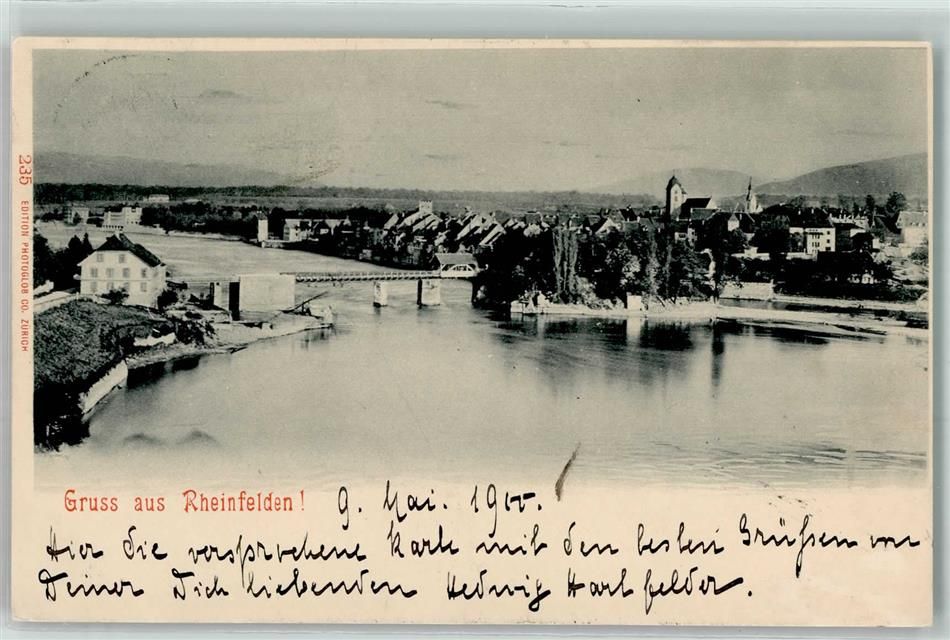 235 EDITION PHOTOGLOB CO. ZÜRICH
Gruss aus Rheinfelden! 9. Mai. 1900.
Hier die versprochene Karte mit den besten Grüßen von
Deiner Dich liebenden Hedwig Hartfelder.